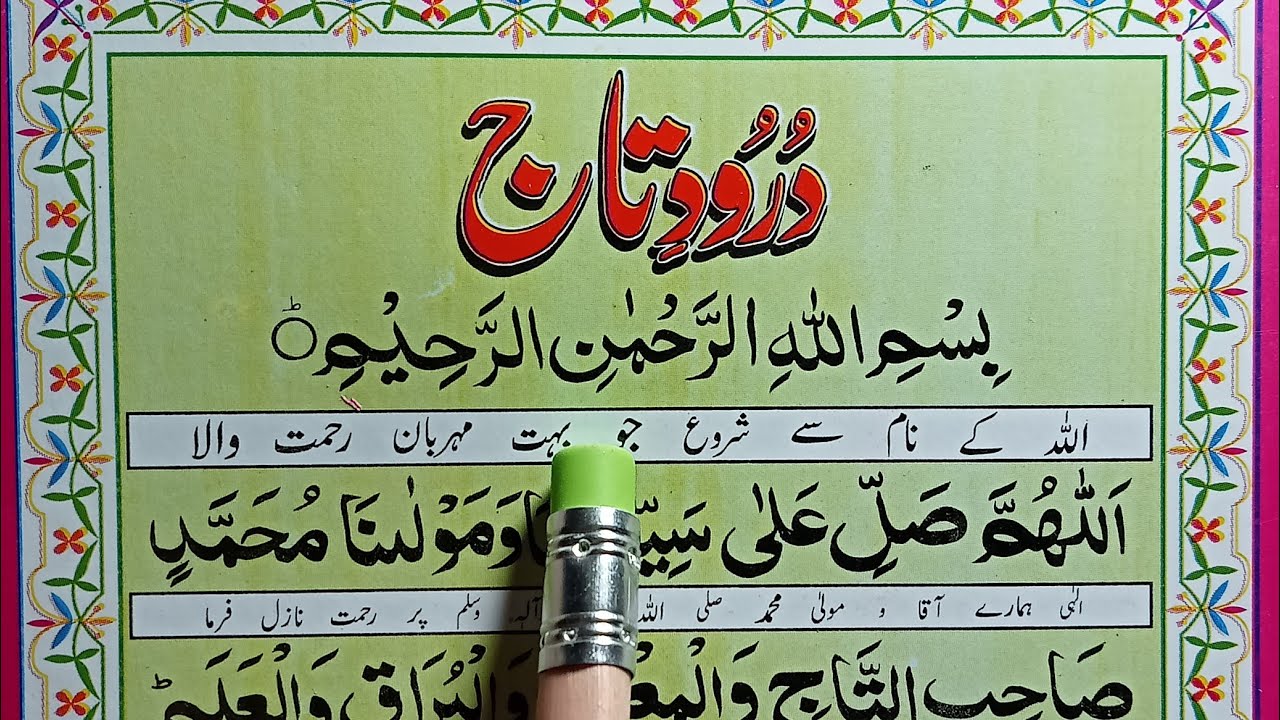 دُرُودِ تاج
بِسْمِ اللهِ الرَّحْمٰنِ الرَّحِيْمِ
الله کے نام سے شروع جو بہت مہربان رحمت والا
اَللّٰهُمَّ صَلِّ عَلٰى وَمَوْلٰىنَا مُحَمَّدٍ
الٰہی ہمارے آقا و مولیٰ محمد صلی اللہ آلہ وسلم پر رحمت نازل فرما
صَاحِبِ التَّاجِ وَالْبُرَاقِ وَالْعَلَمِ